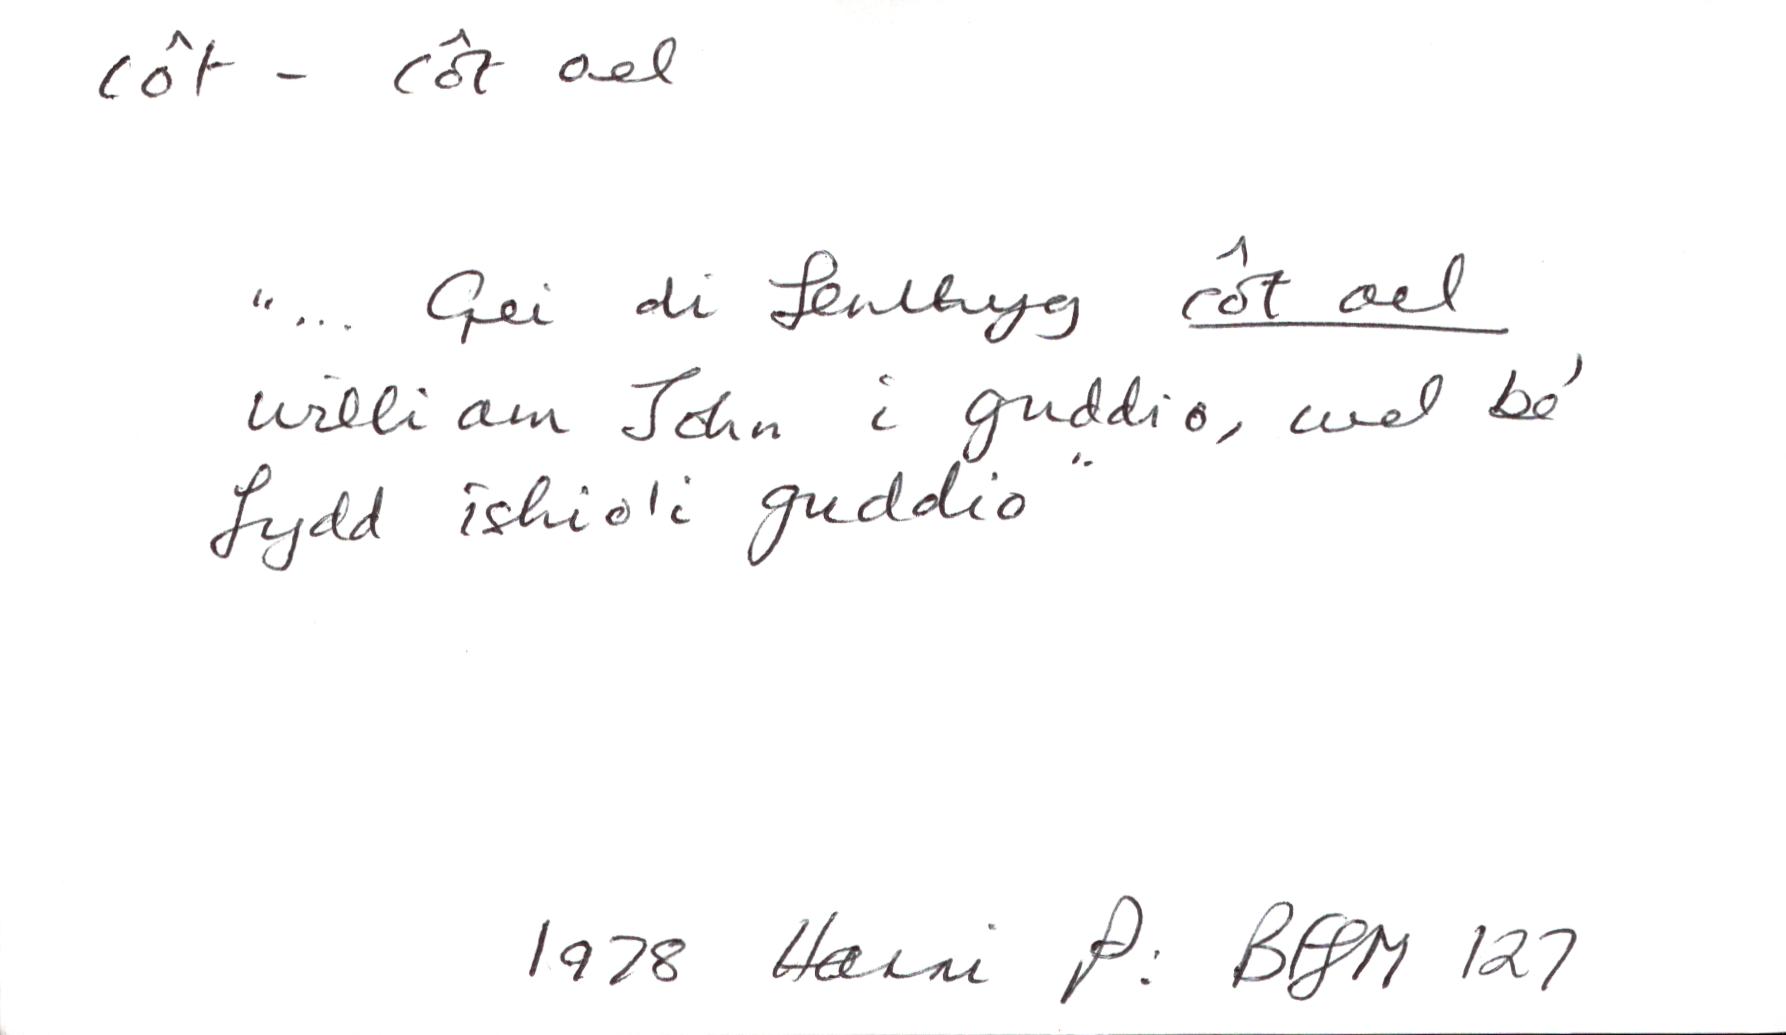 côt - côt ael
"... Gei di fenthyg côt ael
William John i guddio, wel be'
fydd ishio'i guddio"
1978 Harri P: 127